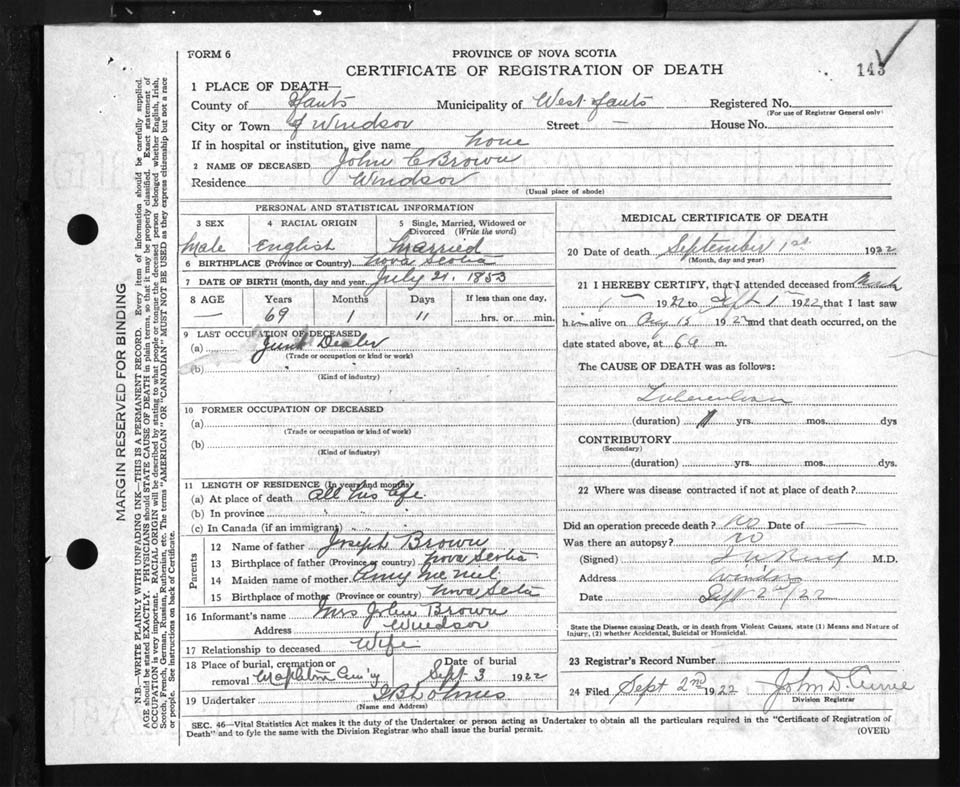 FORM 6
PROVINCE OF NOVA SCOTIA
CERTIFICATE OF REGISTRATION OF DEATH
143
1 PLACE OF DEATH—
County of Hants Municipality of West Hants Registered No.
(For use of Registrar General only)
City or Town of Windsor Street — House No.
If in hospital or institution, give name none
2 NAME OF DECEASED John C Brown
Residence Windsor
(Usual place of abode)
PERSONAL AND STATISTICAL INFORMATION
3 SEX 4 RACIAL ORIGIN 5 Single, Married, Widowed or Divorced (Write the word)
Male English Married
6 BIRTHPLACE (Province or Country) Nova Scotia
7 DATE OF BIRTH (month, day and year) July 21. 1853
8 AGE Years Months Days If less than one day,
69 1 11 hrs. or min.
9 LAST OCCUPATION OF DECEASED
(a) Junk Dealer
(Trade or occupation or kind or work)
(b)
(Kind of industry)
10 FORMER OCCUPATION OF DECEASED
(a)
(Trade or occupation or kind or work)
(b)
(Kind of industry)
11 LENGTH OF RESIDENCE (In years and months)
(a) At place of death All his life
(b) In province " " "
(c) In Canada (if an immigrant) " " "
Parents
12 Name of father Joseph Brown
13 Birthplace of father (Province or country) Nova Scotia
14 Maiden name of mother Amy
15 Birthplace of mother (Province or country) Nova Scotia
16 Informant's name Mrs John Brown
Address Windsor
17 Relationship to deceased Wife
18 Place of burial, cremation or removal Date of burial
Sept 3 1922
19 Undertaker
(Name and Address)
MEDICAL CERTIFICATE OF DEATH
20 Date of death September 1st 1922
(Month, day and year)
21 I HEREBY CERTIFY, that I attended deceased from March
1 1922 to Sept 1st 1922, that I last saw
him alive on Aug 15 1922 and that death occurred, on the
date stated above, at 6 a m.
The CAUSE OF DEATH was as follows:
Tuberculosis
(duration) yrs. mos. dys
CONTRIBUTORY
(Secondary)
(duration) yrs. mos. dys.
22 Where was disease contracted if not at place of death?
Did an operation precede death? No Date of —
Was there an autopsy? No
(Signed) M.D.
Address Windsor
Date Sept 2nd/22
State the Disease causing Death, or in death from Violent Causes, state (1) Means and Nature of
Injury, (2) whether Accidental, Suicidal or Homicidal.
23 Registrar's Record Number
24 Filed Sept 2nd 1922 John D Currie
Division Registrar
SEC. 46—Vital Statistics Act makes it the duty of the Undertaker or person acting as Undertaker to obtain all the particulars required in the "Certificate of Registration of
Death" and to fyle the same with the Division Registrar who shall issue the burial permit.
(OVER)
MARGIN RESERVED FOR BINDING
N.B.—WRITE PLAINLY WITH UNFADING INK—THIS IS A PERMANENT RECORD. Every item of information should be carefully supplied.
AGE should be stated EXACTLY. PHYSICIANS should STATE CAUSE OF DEATH in plain terms, so that it may be properly classified. Exact statement of
OCCUPATION is very important. RACIAL ORIGIN will be described by stating to what people or tongue the deceased person belonged, whether English, Irish,
Scotch, French, German, Russian, Ruthenian, etc. The terms "AMERICAN" OR "CANADIAN" MUST NOT BE USED as they express citizenship but not a race
or people. See instructions on back of Certificate.